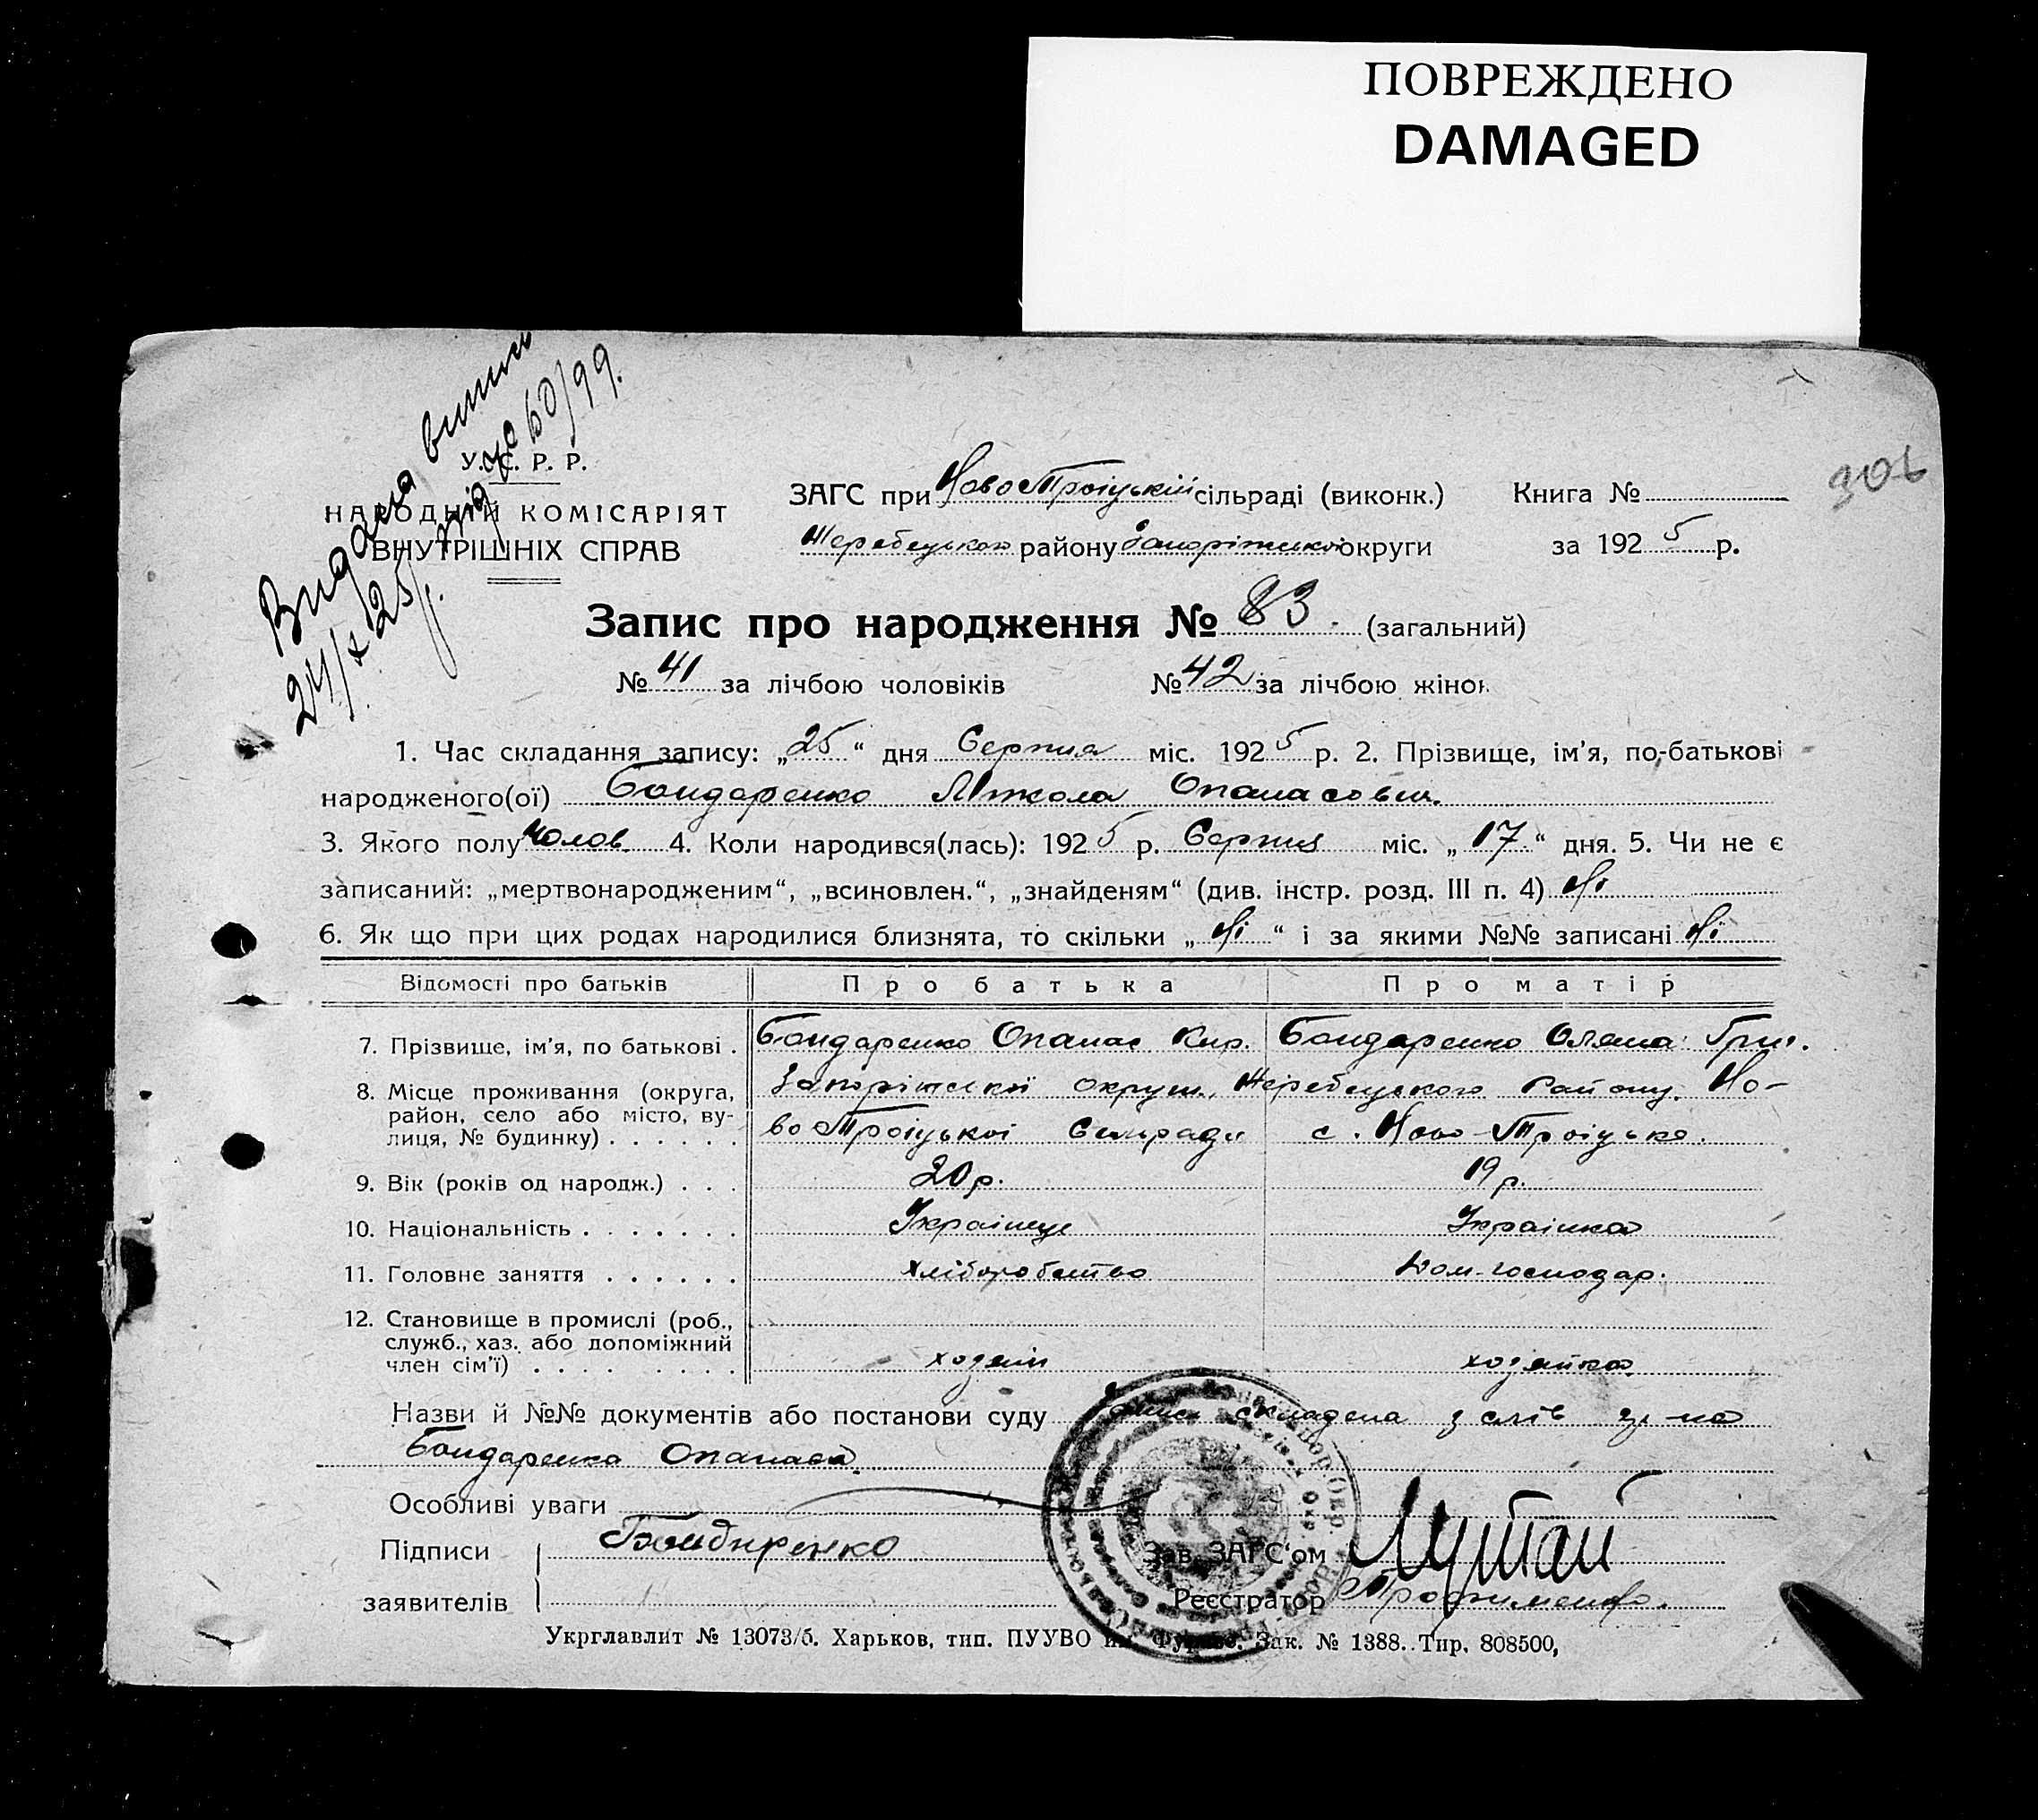 ПОВРЕЖДЕНО
DAMAGED
Видана випис
24/X 25 р. під № 60/99.
У. С. Р. Р.
НАРОДНІЙ КОМІСАРІЯТ
ВНУТРІШНІХ СПРАВ
ЗАГС при НовоТроіцькій сільраді (виконк.) Книга №
306
Жеребецького району Запоріжськоі округи за 1925 р.
Запис про народження № 83. (загальний)
№ 41 за лічбою чоловіків № 42 за лічбою жінок
1. Час складання запису: „25“ дня Серпня міс. 1925 р. 2. Прізвище, ім’я, по-батькові
народженого(ої) Бондаренко Мікола Опанасович.
3. Якого полу чолов. 4. Коли народився(лась): 1925 р. Серпня міс. „17“ дня. 5. Чи не є
записаний: „мертвонародженим“, „всиновлен.“, „знайденям“ (див. інстр. розд. III п. 4) Ні
6. Як що при цих родах народилися близнята, то скільки „Ні“ і за якими №№ записані Ні
Відомості про батьків Про батька Про матір
7. Прізвище, ім’я, по батькові . Бондаренко Опанас Кир. Бондаренко Оляна Григ.
8. Місце проживання (округа, Запоріжської округи, Жеребецького Району. Но-
район, село або місто, ву-
лиця, № будинку) . . . . . . воТроіцькоі Сельради с. Ново-Троіцьке.
9. Вік (років од народж.) . . . 20 р. 19 р.
10. Національність . . . . . . . Українець Українка
11. Головне заняття . . . . . . Хліборобство Дом-господар.
12. Становище в промислі (роб.,
служб., хаз. або допоміжний
член сім’ї) . . . . . . . . ходяїн ходяйка
Назви й №№ документів або постанови суду складена з слів гр-на
Бондаренка Опанаса.
Особливі уваги
Підписи Бондаренко Зав. ЗАГС‘ом
заявителів Реєстратор Трофименко.
Укрглавлит № 13073/б. Харьков, тип. ПУУВО им. Фрунзе. Зак. № 1388. Тир. 808500,